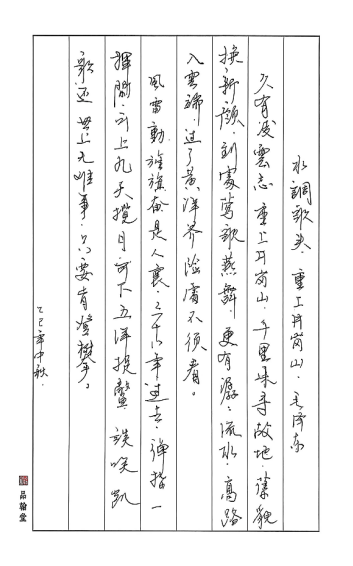 水調歌头·重上井岗山·毛泽东
久有凌雲志 重上井岗山·千里来寻故地·舊貌
换新颜·到處莺歌燕舞 更有潺々流水·高路
入雲端·过了黄洋界 险處不须看。
风雷動 旌旗奋是人寰·三十八年过去·弹指一
揮間 可上九天揽月 可下五洋捉鳖 谈笑凯
歌还 世上无难事·只要肯登攀。
乙巳年中秋·
品翰堂